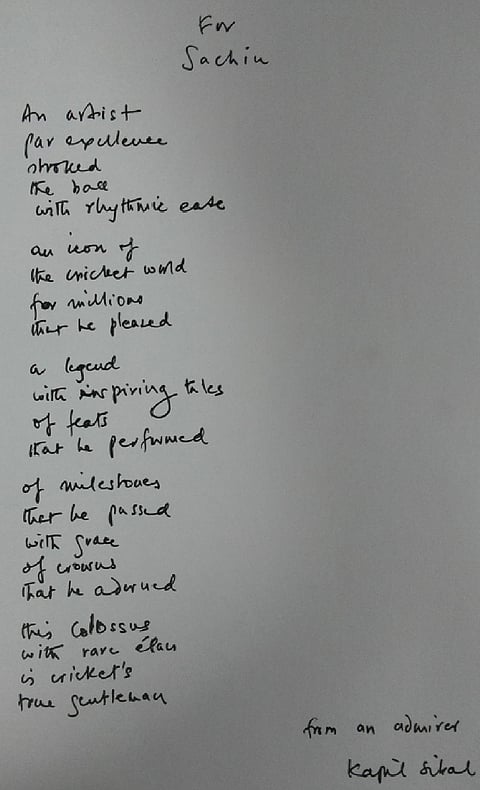 For
Sachin
An artist
par excellence
stroked
the ball
with rhythmic ease
an icon of
the cricket world
for millions
that he pleased
a legend
with inspiring tales
of feats
that he performed
of milestones
that he passed
with grace
of crowns
that he adorned
this Colossus
with rare élan
is cricket's
true gentleman
from an admirer
Kapil Sibal